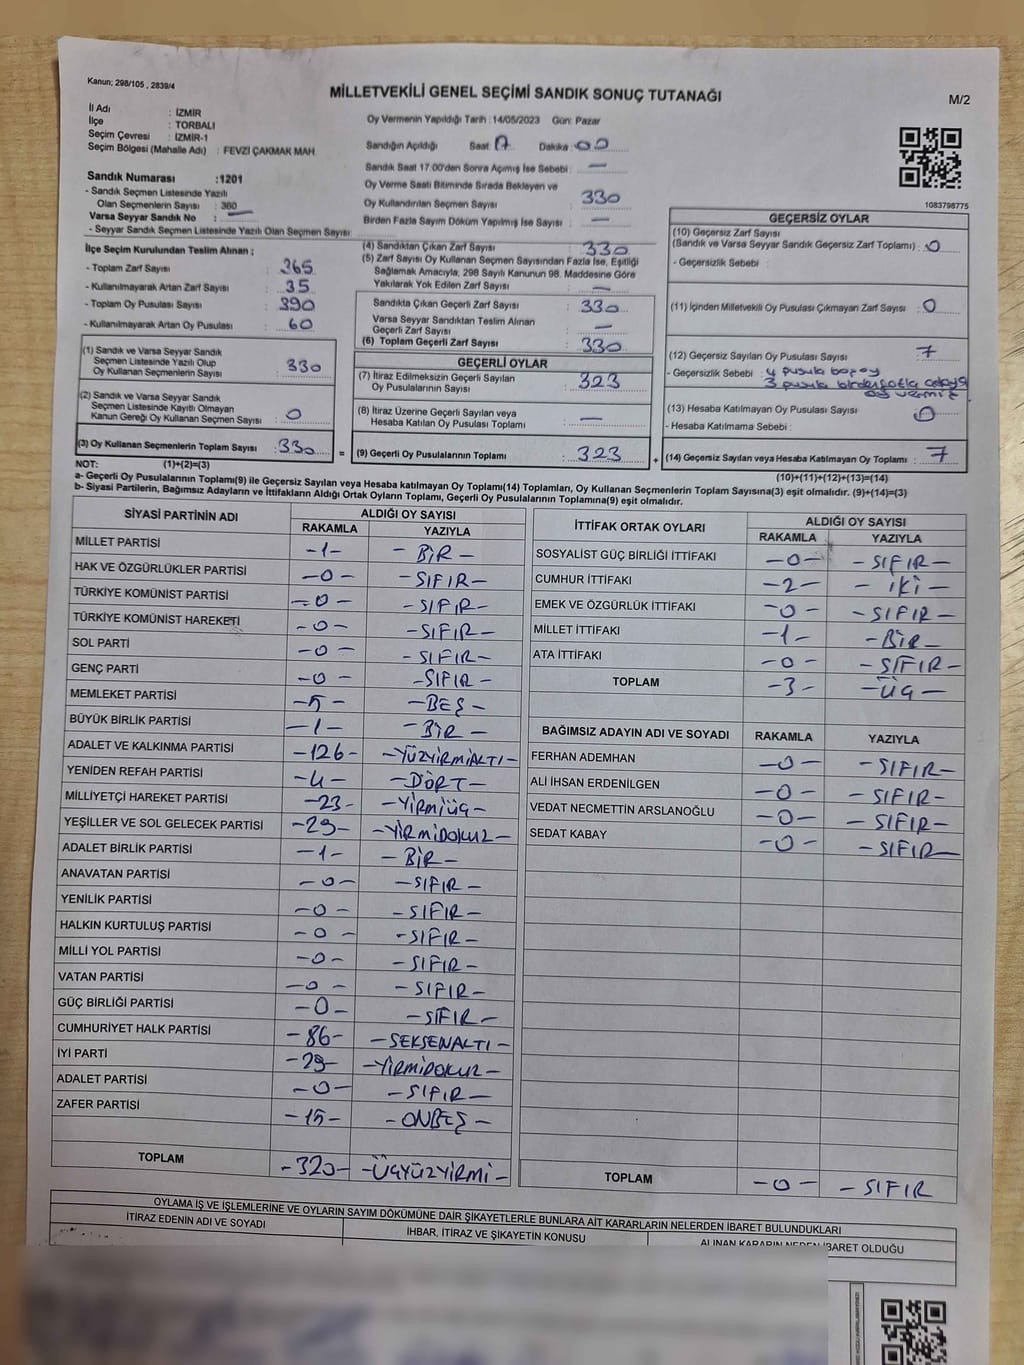 Kanun; 298/105 , 2839/4
MİLLETVEKİLİ GENEL SEÇİMİ SANDIK SONUÇ TUTANAĞI
M/2
İl Adı : İZMİR
İlçe : TORBALI
Seçim Çevresi : İZMİR-1
Seçim Bölgesi (Mahalle Adı) : FEVZİ ÇAKMAK MAH.
Sandık Numarası :1201
- Sandık Seçmen Listesinde Yazılı
Olan Seçmenlerin Sayısı : 360
Varsa Seyyar Sandık No : —
- Seyyar Sandık Seçmen Listesinde Yazılı Olan Seçmen Sayısı
İlçe Seçim Kurulundan Teslim Alınan ;
- Toplam Zarf Sayısı : 365
- Kullanılmayarak Artan Zarf Sayısı : 35
- Toplam Oy Pusulası Sayısı : 390
- Kullanılmayarak Artan Oy Pusulası : 60
(1) Sandık ve Varsa Seyyar Sandık
Seçmen Listesinde Yazılı Olup
Oy Kullanan Seçmenlerin Sayısı : 330
(2) Sandık ve Varsa Seyyar Sandık
Seçmen Listesinde Kayıtlı Olmayan
Kanun Gereği Oy Kullanan Seçmen Sayısı : 0
(3) Oy Kullanan Seçmenlerin Toplam Sayısı : 330
Oy Vermenin Yapıldığı Tarih :14/05/2023 Gün: Pazar
Sandığın Açıldığı Saat : 17 Dakika : 00
Sandık Saat 17.00'den Sonra Açımış İse Sebebi : —
Oy Verme Saati Bitiminde Sırada Bekleyen ve
Oy Kullandırılan Seçmen Sayısı : 330
Birden Fazla Sayım Döküm Yapılmış İse Sayısı : —
(4) Sandıktan Çıkan Zarf Sayısı : 330
(5) Zarf Sayısı Oy Kullanan Seçmen Sayısından Fazla İse, Eşitliği
Sağlamak Amacıyla, 298 Sayılı Kanunun 98. Maddesine Göre
Yakılarak Yok Edilen Zarf Sayısı : —
Sandıkta Çıkan Geçerli Zarf Sayısı : 330
Varsa Seyyar Sandıktan Teslim Alınan
Geçerli Zarf Sayısı : —
(6) Toplam Geçerli Zarf Sayısı : 330
GEÇERLİ OYLAR
(7) İtiraz Edilmeksizin Geçerli Sayılan
Oy Pusulalarının Sayısı : 323
(8) İtiraz Üzerine Geçerli Sayılan veya
Hesaba Katılan Oy Pusulası Toplamı : —
= (9) Geçerli Oy Pusulalarının Toplamı : 323
1083798775
GEÇERSİZ OYLAR
(10) Geçersiz Zarf Sayısı
(Sandık ve Varsa Seyyar Sandık Geçersiz Zarf Toplamı) : 0
- Geçersizlik Sebebi :
(11) İçinden Milletvekili Oy Pusulası Çıkmayan Zarf Sayısı : 0
(12) Geçersiz Sayılan Oy Pusulası Sayısı : 7
- Geçersizlik Sebebi : 4 pusula boş oy
3 pusula birden fazla adaya
oy vermiş.
(13) Hesaba Katılmayan Oy Pusulası Sayısı : 0
- Hesaba Katılmama Sebebi :
+ (14) Geçersiz Sayılan veya Hesaba Katılmayan Oy Toplamı : 7
NOT: (1)+(2)=(3) (10)+(11)+(12)+(13)=(14)
a- Geçerli Oy Pusulalarının Toplamı(9) ile Geçersiz Sayılan veya Hesaba katılmayan Oy Toplamı(14) Toplamları, Oy Kullanan Seçmenlerin Toplam Sayısına(3) eşit olmalıdır. (9)+(14)=(3)
b- Siyasi Partilerin, Bağımsız Adayların ve İttifakların Aldığı Ortak Oyların Toplamı, Geçerli Oy Pusulalarının Toplamına(9) eşit olmalıdır.
SİYASİ PARTİNİN ADI ALDIĞI OY SAYISI
RAKAMLA YAZIYLA
MİLLET PARTİSİ -1- -BİR-
HAK VE ÖZGÜRLÜKLER PARTİSİ -0- -SIFIR-
TÜRKİYE KOMÜNİST PARTİSİ -0- -SIFIR-
TÜRKİYE KOMÜNİST HAREKETİ -0- -SIFIR-
SOL PARTİ -0- -SIFIR-
GENÇ PARTİ -0- -SIFIR-
MEMLEKET PARTİSİ -5- -BEŞ-
BÜYÜK BİRLİK PARTİSİ -1- -BİR-
ADALET VE KALKINMA PARTİSİ -126- -YÜZYİRMİALTI-
YENİDEN REFAH PARTİSİ -4- -DÖRT-
MİLLİYETÇİ HAREKET PARTİSİ -23- -YİRMİÜÇ-
YEŞİLLER VE SOL GELECEK PARTİSİ -29- -YİRMİDOKUZ-
ADALET BİRLİK PARTİSİ -1- -BİR-
ANAVATAN PARTİSİ -0- -SIFIR-
YENİLİK PARTİSİ -0- -SIFIR-
HALKIN KURTULUŞ PARTİSİ -0- -SIFIR-
MİLLİ YOL PARTİSİ -0- -SIFIR-
VATAN PARTİSİ -0- -SIFIR-
GÜÇ BİRLİĞİ PARTİSİ -0- -SIFIR-
CUMHURİYET HALK PARTİSİ -86- -SEKSENALTI-
İYİ PARTİ -29- -YİRMİDOKUZ-
ADALET PARTİSİ -0- -SIFIR-
ZAFER PARTİSİ -15- -ONBEŞ-
TOPLAM -320- -ÜÇYÜZYİRMİ-
İTTİFAK ORTAK OYLARI ALDIĞI OY SAYISI
RAKAMLA YAZIYLA
SOSYALİST GÜÇ BİRLİĞİ İTTİFAKI -0- -SIFIR-
CUMHUR İTTİFAKI -2- -İKİ-
EMEK VE ÖZGÜRLÜK İTTİFAKI -0- -SIFIR-
MİLLET İTTİFAKI -1- -BİR-
ATA İTTİFAKI -0- -SIFIR-
TOPLAM -3- -ÜÇ-
BAĞIMSIZ ADAYIN ADI VE SOYADI RAKAMLA YAZIYLA
FERHAN ADEMHAN -0- -SIFIR-
ALİ İHSAN ERDENİLGEN -0- -SIFIR-
VEDAT NECMETTİN ARSLANOĞLU -0- -SIFIR-
SEDAT KABAY -0- -SIFIR-
TOPLAM -0- -SIFIR
OYLAMA İŞ VE İŞLEMLERİNE VE OYLARIN SAYIM DÖKÜMÜNE DAİR ŞİKAYETLERLE BUNLARA AİT KARARLARIN NELERDEN İBARET BULUNDUKLARI
İTİRAZ EDENİN ADI VE SOYADI İHBAR, İTİRAZ VE ŞİKAYETİN KONUSU ALINAN KARARIN NEDEN İBARET OLDUĞU